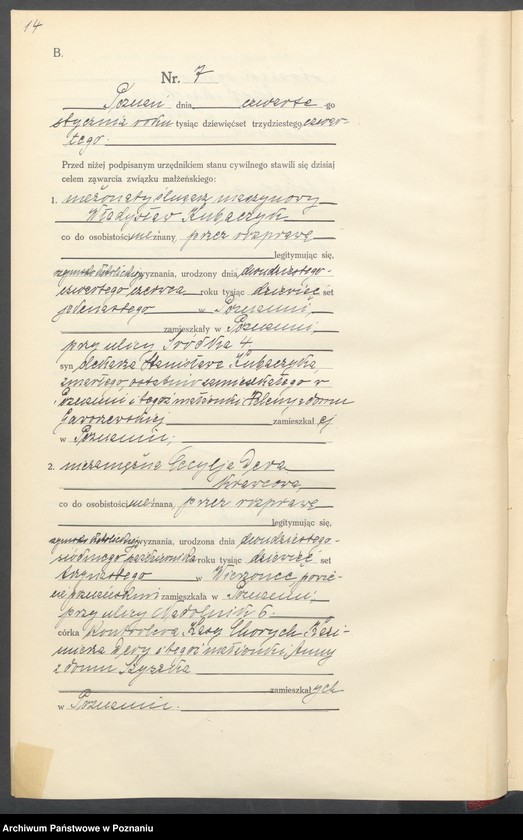 14
B.
Nr. 7
Poznań dnia czwarte -go
stycznia roku tysiąc dziewięćset trzydziestego czwar-
tego.
Przed niżej podpisanym urzędnikiem stanu cywilnego stawili się dzisiaj
celem zawarcia związku małżeńskiego:
1. nieżonaty ślusarz maszynowy
Władysław Kubaczyk
co do osobistości nieznany, przez rozprawę
legitymując się,
rzymsko katolickiego wyznania, urodzony dnia dwudziestego-
czwartego czerwca roku tysiąc dziewięć set
jedenastego w Poznaniu,
zamieszkały w Poznaniu,
przy ulicy Śródka 4.
syn dekarza Stanisława Kubaczyka,
zmarłego, ostatnio zamieszkałego w
Poznaniu i tegoż małżonki Heleny z domu
zamieszkał ej
w Poznaniu;
2. niezamężna Cecylja Dera
krawcowa,
co do osobistości nieznana, przez rozprawę
legitymując się,
rzymsko katolickiego wyznania, urodzona dnia dwudziestego-
siódmego października roku tysiąc dziewięć set
trzynastego w Wierzonce, powie-
cie poznańskim zamieszkała w Poznaniu,
przy ulicy 6.
córka kontrolera Kasy Chorych Kazi-
mierza Dery i tegoż małżonki Anny
z domu
zamieszkał ych
w Poznaniu.
Archiwum Państwowe w Poznaniu